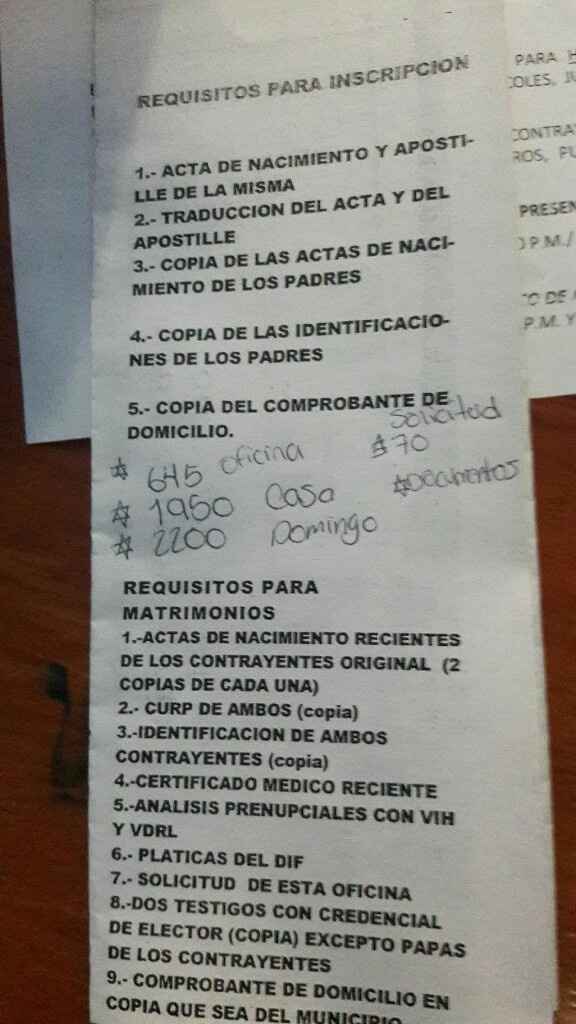 REQUISITOS PARA INSCRIPCION
1.- ACTA DE NACIMIENTO Y APOSTI-
LLE DE LA MISMA
2.- TRADUCCION DEL ACTA Y DEL
APOSTILLE
3.- COPIA DE LAS ACTAS DE NACI-
MIENTO DE LOS PADRES
4.- COPIA DE LAS IDENTIFICACIO-
NES DE LOS PADRES
5.- COPIA DEL COMPROBANTE DE
DOMICILIO.
Solicitud
645 oficina $70
1950 Casa
2200 Domingo
REQUISITOS PARA
MATRIMONIOS
1.-ACTAS DE NACIMIENTO RECIENTES
DE LOS CONTRAYENTES ORIGINAL (2
COPIAS DE CADA UNA)
2.- CURP DE AMBOS (copia)
3.-IDENTIFICACION DE AMBOS
CONTRAYENTES (copia)
4.-CERTIFICADO MEDICO RECIENTE
5.-ANALISIS PRENUPCIALES CON VIH
Y VDRL
6.- PLATICAS DEL DIF
7.- SOLICITUD DE ESTA OFICINA
8.-DOS TESTIGOS CON CREDENCIAL
DE ELECTOR (COPIA) EXCEPTO PAPAS
DE LOS CONTRAYENTES
9.- COMPROBANTE DE DOMICILIO EN
COPIA QUE SEA DEL MUNICIPIO
PARA
P.M./
P.M. Y